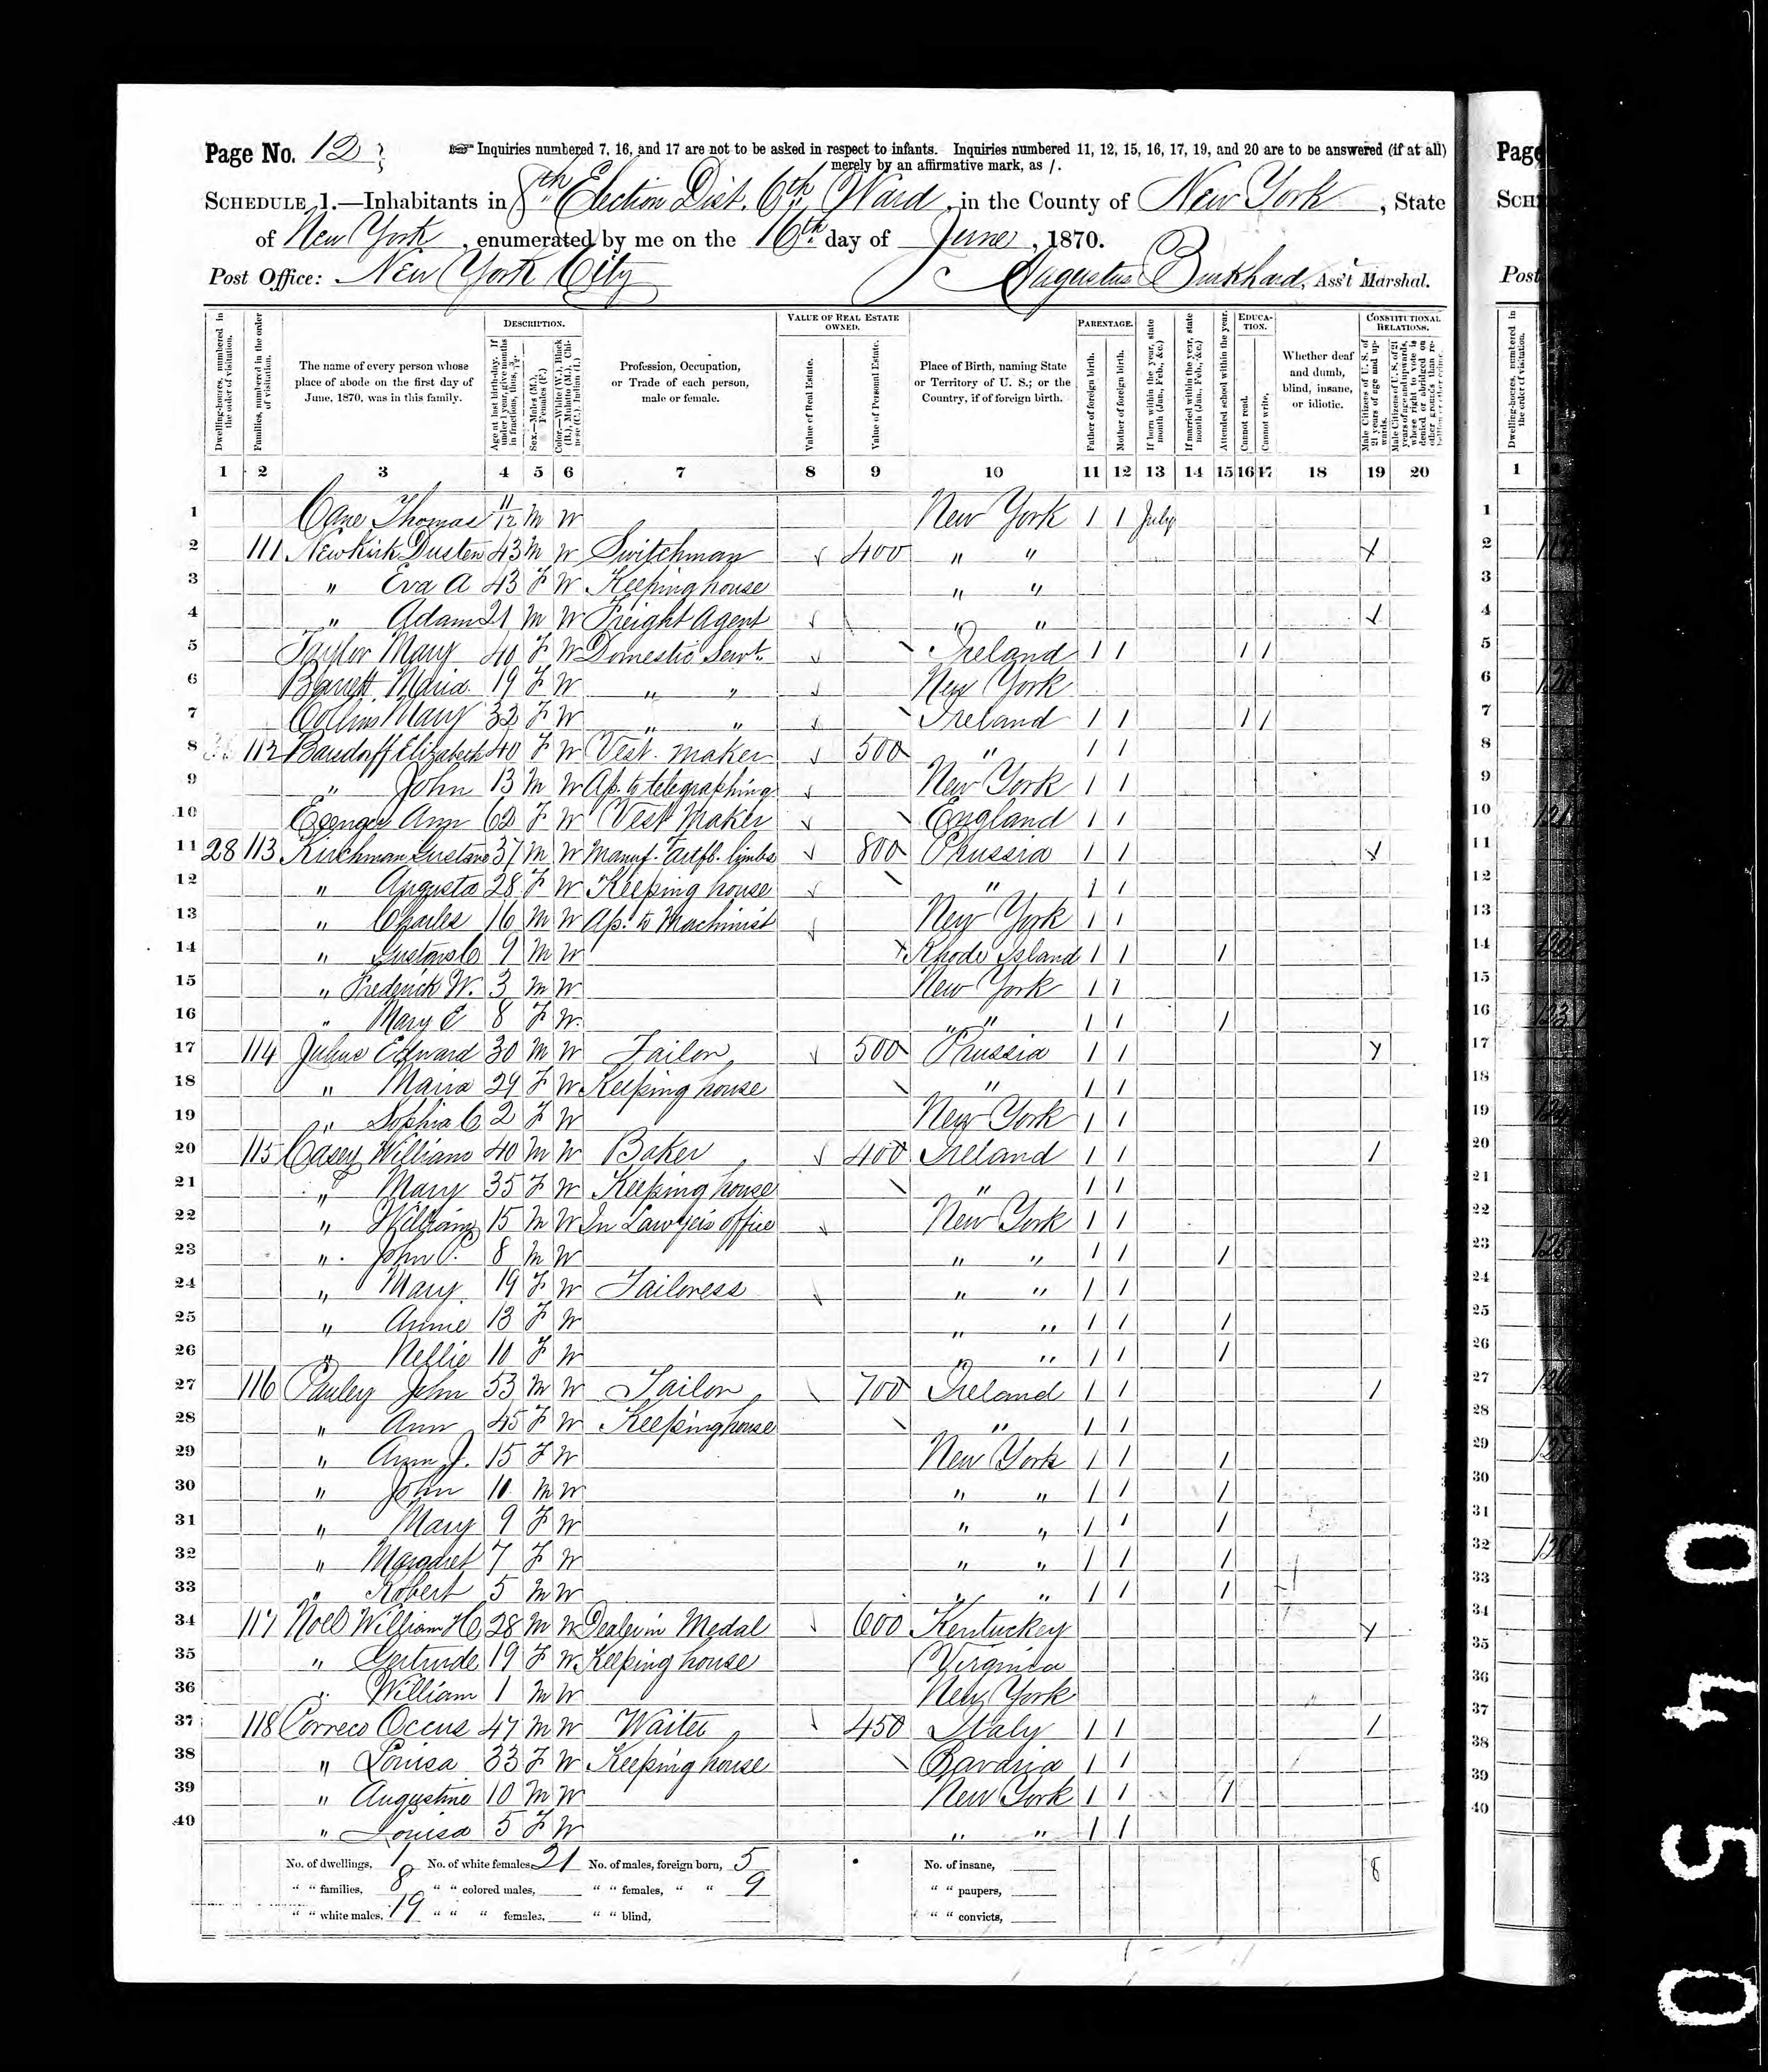 Page No. 12
Inquiries numbered 7, 16, and 17 are not to be asked in respect to infants. Inquiries numbered 11, 12, 15, 16, 17, 19, and 20 are to be answered (if at all)
merely by an affirmative mark, as /.
SCHEDULE 1.—Inhabitants in 8th Election Dist. 6th Ward, in the County of New York, State
of New York, enumerated by me on the 16th day of June, 1870.
Post Office: New York City Augustus Burkhard, Ass't Marshal.
DESCRIPTION. VALUE OF REAL ESTATE OWNED. PARENTAGE. EDUCATION. CONSTITUTIONAL RELATIONS.
Dwelling-houses, numbered in the order of visitation.
Families, numbered in the order of visitation.
The name of every person whose place of abode on the first day of June, 1870, was in this family.
Age at last birth-day. If under 1 year, give months in fractions, thus, 3/12.
Sex.—Males (M.), Females (F.)
Color.—White (W.), Black (B.), Mulatto (M.), Chinese (C.), Indian (I.)
Profession, Occupation, or Trade of each person, male or female.
Value of Real Estate.
Value of Personal Estate.
Place of Birth, naming State or Territory of U. S.; or the Country, if of foreign birth.
Father of foreign birth.
Mother of foreign birth.
If born within the year, state month (Jan., Feb., &c.)
If married within the year, state month (Jan., Feb., &c.)
Attended school within the year.
Cannot read.
Cannot write.
Whether deaf and dumb, blind, insane, or idiotic.
Male Citizens of U. S. of 21 years of age and upwards.
Male Citizens of U. S. of 21 years of age and upwards, whose right to vote is denied or abridged on other grounds than rebellion or other crime.
1 2 3 4 5 6 7 8 9 10 11 12 13 14 15 16 17 18 19 20
1 Cane Thomas 11/12 M W New York / / July
2 111 Newkirk Dusten 43 M W Switchman 400 " " /
3 " Eva A 43 F W Keeping house " "
4 " Adam 21 M W Freight Agent " " /
5 Taylor Mary 40 F W Domestic Servt. Ireland / / / /
6 Barrett Maria 19 F W " " New York
7 Collins Mary 32 F W " " Ireland / / / /
8 112 Barsdorff Elizabeth 40 F W Vest maker 500 " / /
9 " John 13 M W Ap. to telegraphing New York / /
10 Ann 62 F W Vest Maker England / /
11 28 113 Kirchman Gustave 37 M W Manuf. Artfl. limbs 800 Prussia / / /
12 " Augusta 28 F W Keeping house " / /
13 " Charles 16 M W Ap. to Machinist New York / /
14 " Gustave C 9 M W Rhode Island / / /
15 " Frederick W. 3 M W New York / /
16 " Mary E 8 F W. " " / / /
17 114 Julius Edward 30 M W Tailor 500 Prussia / / /
18 " Maria 29 F W Keeping house " / /
19 " Sophia C 2 F W New York / /
20 115 Casey William 40 M W Baker 400 Ireland / / /
21 " Mary 35 F W Keeping house " / /
22 " William 15 M W In Lawyers office New York / /
23 " John P. 8 M W " " / / /
24 " Mary 19 F W Tailoress " " / /
25 " Annie 13 F W " " / / /
26 " Nellie 10 F W " " / / /
27 116 Pauley John 53 M W Tailor 700 Ireland / / /
28 " Ann 45 F W Keeping house " / /
29 " Ann J. 15 F W New York / / /
30 " John 10 M W " " / / /
31 " Mary 9 F W " " / / /
32 " Margaret 7 F W " " / / /
33 " Robert 5 M W " " / / /
34 117 Noell William H 28 M W Dealer in Medal 600 Kentucky /
35 " Gertrude 19 F W Keeping house Virginia
36 " William 1 M W New York
37 118 Correco Occus 47 M W Waiter 450 Italy / / /
38 " Louisa 33 F W Keeping house Bavaria / /
39 " Augustine 10 M W New York / / /
40 " Louisa 5 F W " " / /
No. of dwellings, 1 No. of white females 21 No. of males, foreign born, 5 No. of insane, 8
" " families, 8 " " colored males, " " females, " " 9 " " paupers,
" " white males, 19 " " " females, " " blind, " " convicts,
Page
SCH
Post
Dwelling-houses, numbered in the order of visitation.
1
1
2
3
4
5
6
7
8
9
10
11
12
13
14
15
16
17
18
19
20
21
22
23
24
25
26
27
28
29
30
31
32
33
34
35
36
37
38
39
40
0540